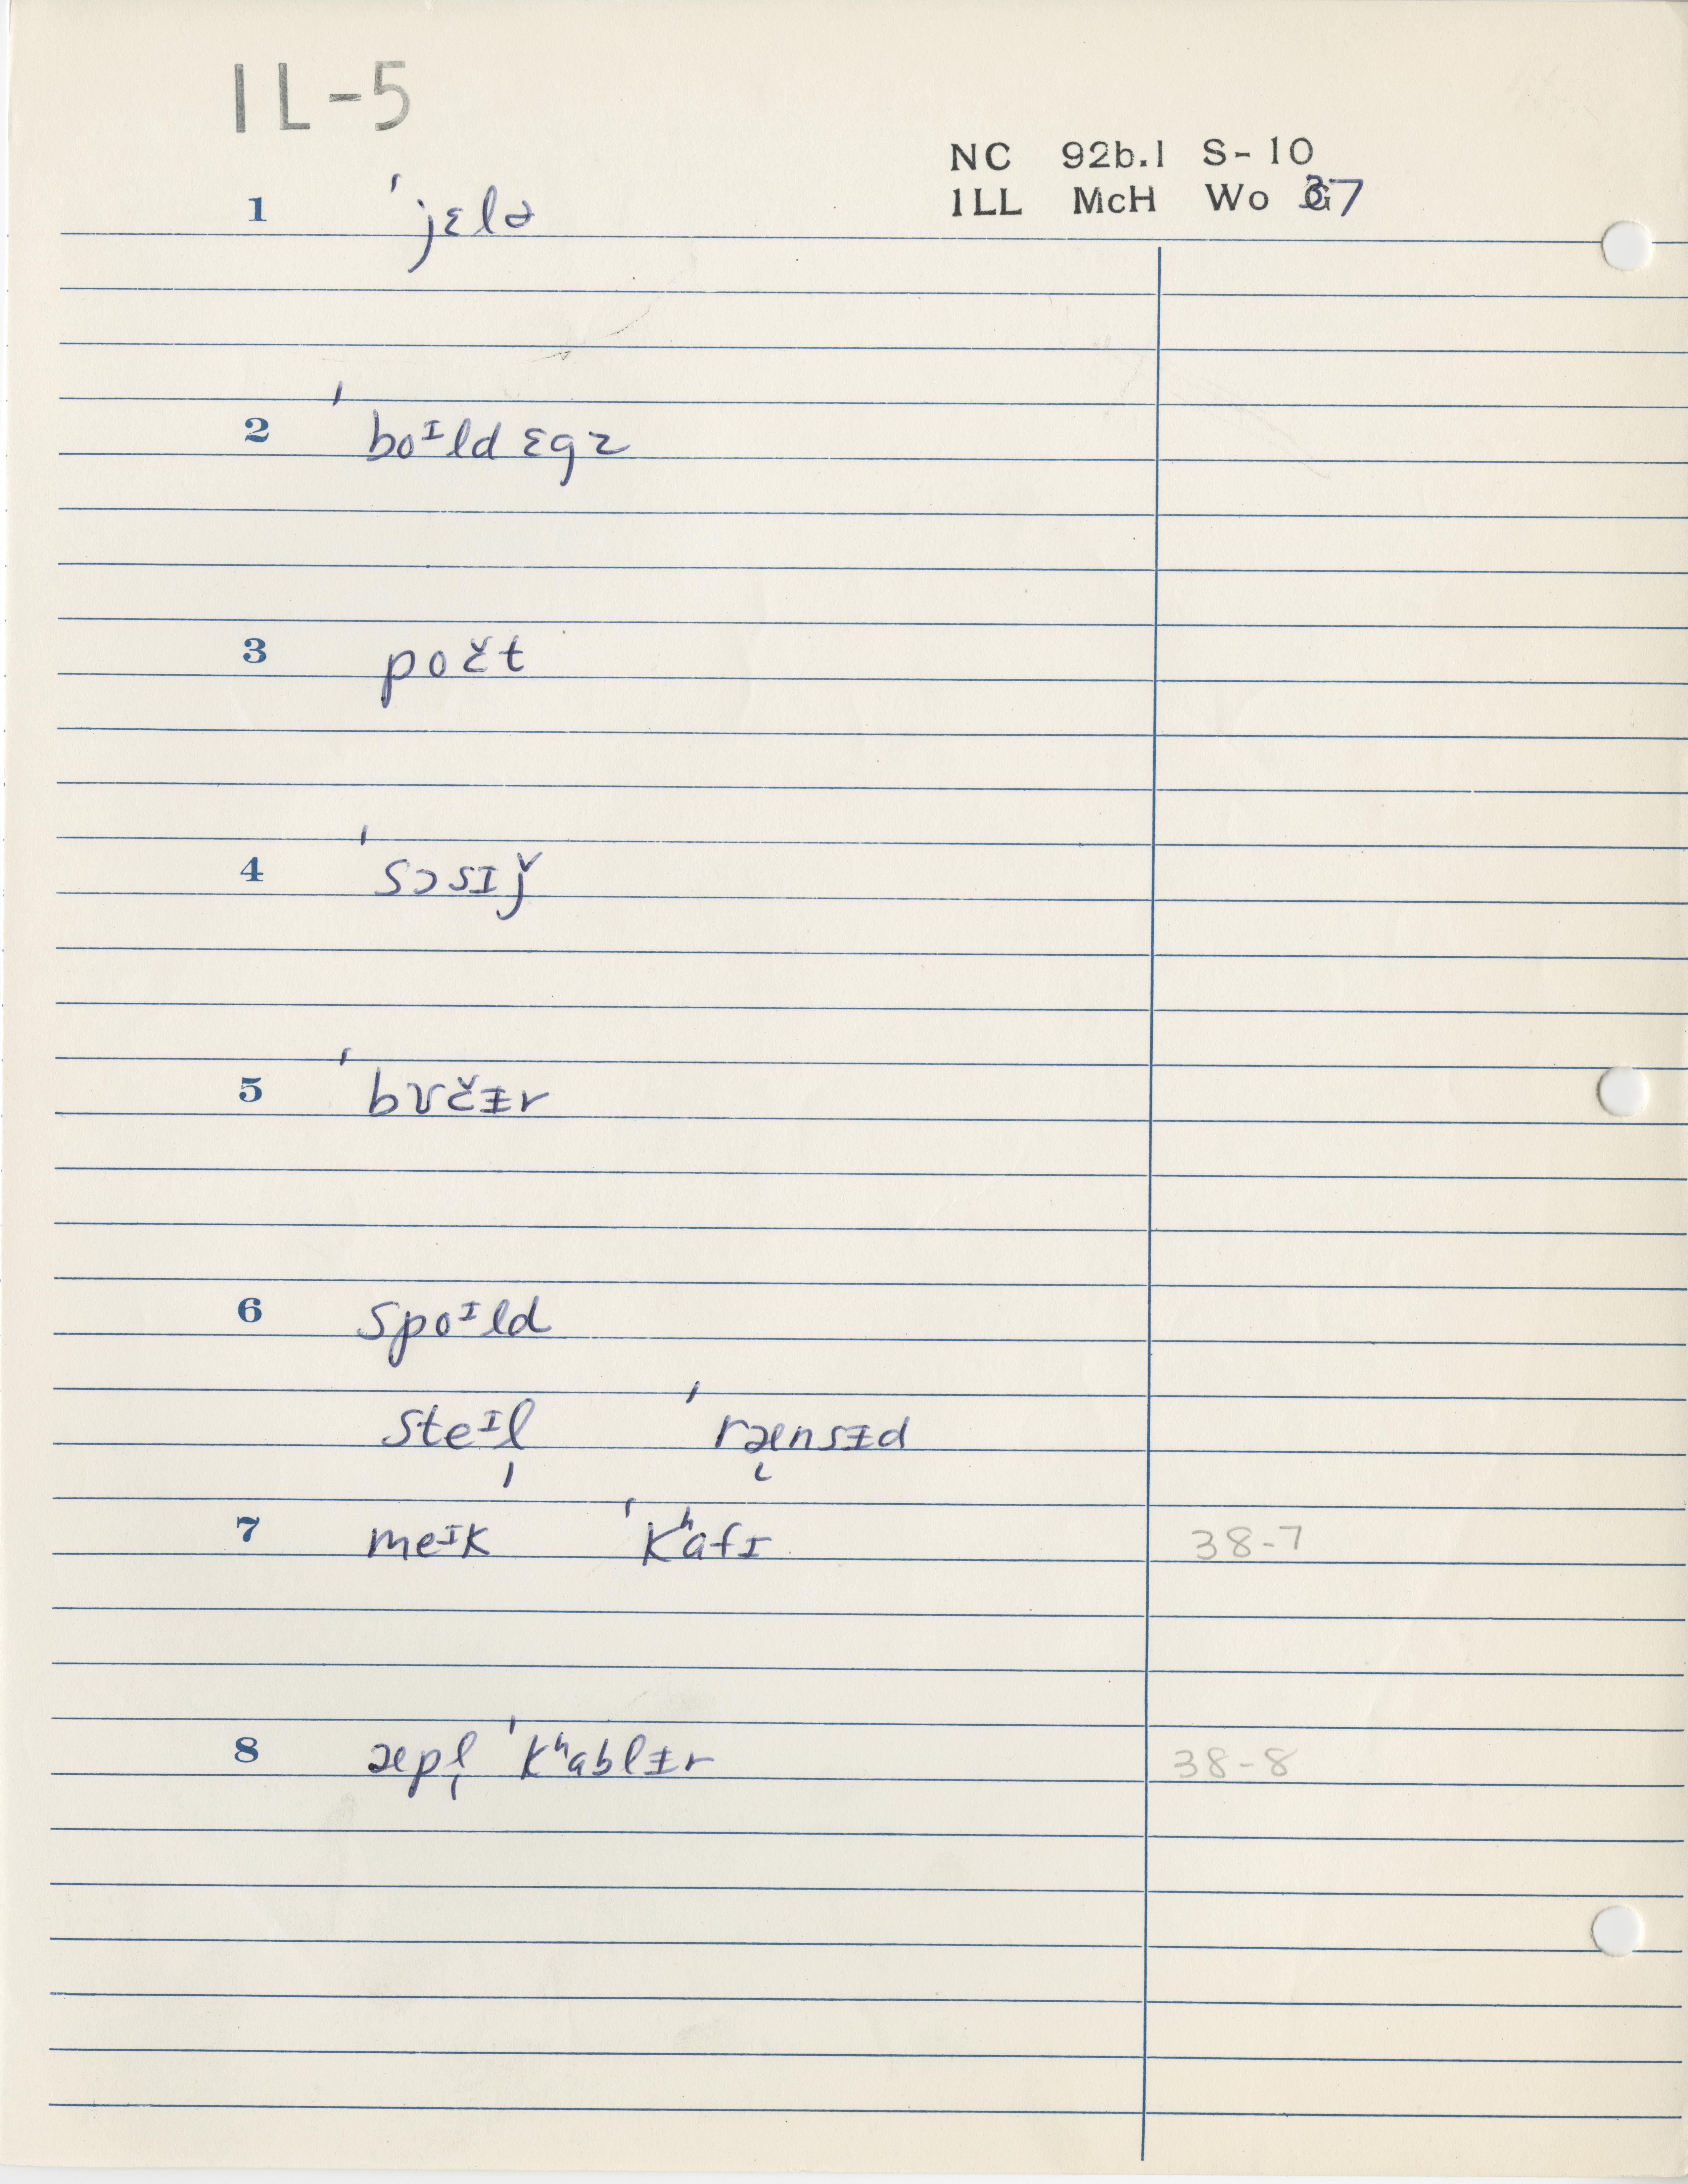 1L-5
NC 92b.1 S-10
1LL McH Wo 37
1 ˈjɛlə
2 ˈboᶦld ɛgz
3 počt
4 ˈsɔsɪǰ
5 ˈbʊčɨr
6 spoᶦld
steᶦl̩ ˈræ̨nsɨd
7 meᶦk ˈkʰafɪ
38-7
8 æpl̩ ˈkʰablɨr
38-8